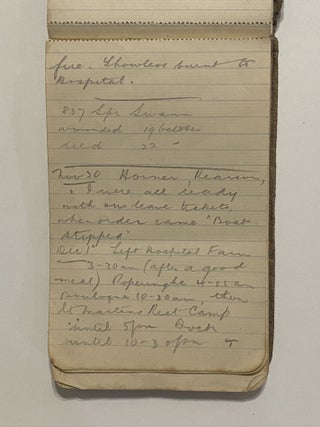 fire. Showless burnt to
Hospital.
837 Spr Swann
wounded 19 October
died 22 -
Nov 30 Horner, Rearson,
& I were all ready
with our leave tickets,
when order came "Boat
stopped"
Dec 1 Left Hospital Farm
3-30am (after a good
meal) Poperinghe 4-55 am
Boulogne 10-30am, then
St Martins Rest Camp
until 5pm Dock
until 10-30pm &